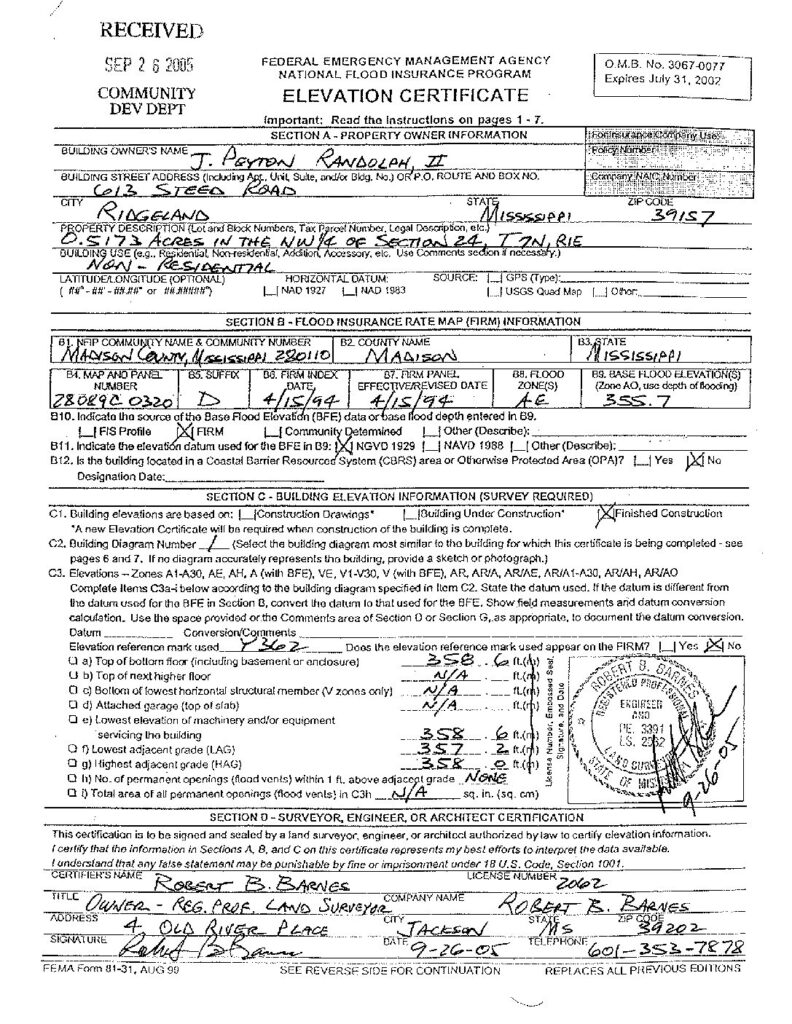 RECEIVED
SEP 26 2005
COMMUNITY
DEV DEPT
FEDERAL EMERGENCY MANAGEMENT AGENCY
NATIONAL FLOOD INSURANCE PROGRAM
ELEVATION CERTIFICATE
Important: Read the instructions on pages 1 - 7.
O.M.B. No. 3067-0077
Expires July 31, 2002
SECTION A - PROPERTY OWNER INFORMATION
For Insurance Company Use:
BUILDING OWNER'S NAME J. PEYTON RANDOLPH, II
Policy Number
BUILDING STREET ADDRESS (Including Apt., Unit, Suite, and/or Bldg. No.) OR P.O. ROUTE AND BOX NO.
Company NAIC Number
613 STEED ROAD
CITY STATE ZIP CODE
RIDGELAND MISSISSIPPI 39157
PROPERTY DESCRIPTION (Lot and Block Numbers, Tax Parcel Number, Legal Description, etc.)
0.5173 ACRES IN THE NW/4 OF SECTION 24, T7N, R1E
BUILDING USE (e.g., Residential, Non-residential, Addition, Accessory, etc. Use Comments section if necessary.)
NON-RESIDENTIAL
LATITUDE/LONGITUDE (OPTIONAL) HORIZONTAL DATUM: SOURCE: |__| GPS (Type):
( ##° - ##' - ##.##" or ##.#####°) |__| NAD 1927 |__| NAD 1983 |__| USGS Quad Map |__| Other:
SECTION B - FLOOD INSURANCE RATE MAP (FIRM) INFORMATION
B1. NFIP COMMUNITY NAME & COMMUNITY NUMBER B2. COUNTY NAME B3. STATE
MADISON COUNTY, MISSISSIPPI 280110 MADISON MISSISSIPPI
B4. MAP AND PANEL NUMBER B5. SUFFIX B6. FIRM INDEX DATE B7. FIRM PANEL EFFECTIVE/REVISED DATE B8. FLOOD ZONE(S) B9. BASE FLOOD ELEVATION(S) (Zone AO, use depth of flooding)
28089C 0320 D 4/15/94 4/15/94 AE 355.7
B10. Indicate the source of the Base Flood Elevation (BFE) data or base flood depth entered in B9.
|__| FIS Profile |X| FIRM |__| Community Determined |__| Other (Describe):
B11. Indicate the elevation datum used for the BFE in B9: |X| NGVD 1929 |__| NAVD 1988 |__| Other (Describe):
B12. Is the building located in a Coastal Barrier Resources System (CBRS) area or Otherwise Protected Area (OPA)? |__| Yes |X| No
Designation Date:
SECTION C - BUILDING ELEVATION INFORMATION (SURVEY REQUIRED)
C1. Building elevations are based on: |__| Construction Drawings* |__| Building Under Construction* |X| Finished Construction
*A new Elevation Certificate will be required when construction of the building is complete.
C2. Building Diagram Number 1 (Select the building diagram most similar to the building for which this certificate is being completed - see
pages 6 and 7. If no diagram accurately represents the building, provide a sketch or photograph.)
C3. Elevations – Zones A1-A30, AE, AH, A (with BFE), VE, V1-V30, V (with BFE), AR, AR/A, AR/AE, AR/A1-A30, AR/AH, AR/AO
Complete Items C3a-i below according to the building diagram specified in Item C2. State the datum used. If the datum is different from
the datum used for the BFE in Section B, convert the datum to that used for the BFE. Show field measurements and datum conversion
calculation. Use the space provided or the Comments area of Section D or Section G, as appropriate, to document the datum conversion.
Datum Conversion/Comments
Elevation reference mark used Y362 Does the elevation reference mark used appear on the FIRM? |__| Yes |X| No
a) Top of bottom floor (including basement or enclosure) 358.6 ft.(m)
b) Top of next higher floor N/A ft.(m)
c) Bottom of lowest horizontal structural member (V zones only) N/A ft.(m)
d) Attached garage (top of slab) N/A ft.(m)
e) Lowest elevation of machinery and/or equipment
servicing the building 358.6 ft.(m)
f) Lowest adjacent grade (LAG) 357.2 ft.(m)
g) Highest adjacent grade (HAG) 358.0 ft.(m)
h) No. of permanent openings (flood vents) within 1 ft. above adjacent grade NONE
i) Total area of all permanent openings (flood vents) in C3h N/A sq. in. (sq. cm)
License Number, Embossed Seal,
Signature, and Date
ROBERT B. BARNES
REGISTERED PROFESSIONAL
ENGINEER
AND
PE. 3391
LS. 2062
LAND SURVEYOR
STATE OF MISS
9-26-05
SECTION D - SURVEYOR, ENGINEER, OR ARCHITECT CERTIFICATION
This certification is to be signed and sealed by a land surveyor, engineer, or architect authorized by law to certify elevation information.
I certify that the information in Sections A, B, and C on this certificate represents my best efforts to interpret the data available.
I understand that any false statement may be punishable by fine or imprisonment under 18 U.S. Code, Section 1001.
CERTIFIER'S NAME ROBERT B. BARNES LICENSE NUMBER 2062
TITLE OWNER - REG. PROF. LAND SURVEYOR COMPANY NAME ROBERT B. BARNES
ADDRESS 4, OLD RIVER PLACE CITY JACKSON STATE MS ZIP CODE 39202
SIGNATURE Robert B Barnes DATE 9-26-05 TELEPHONE 601-353-7878
FEMA Form 81-31, AUG 99 SEE REVERSE SIDE FOR CONTINUATION REPLACES ALL PREVIOUS EDITIONS